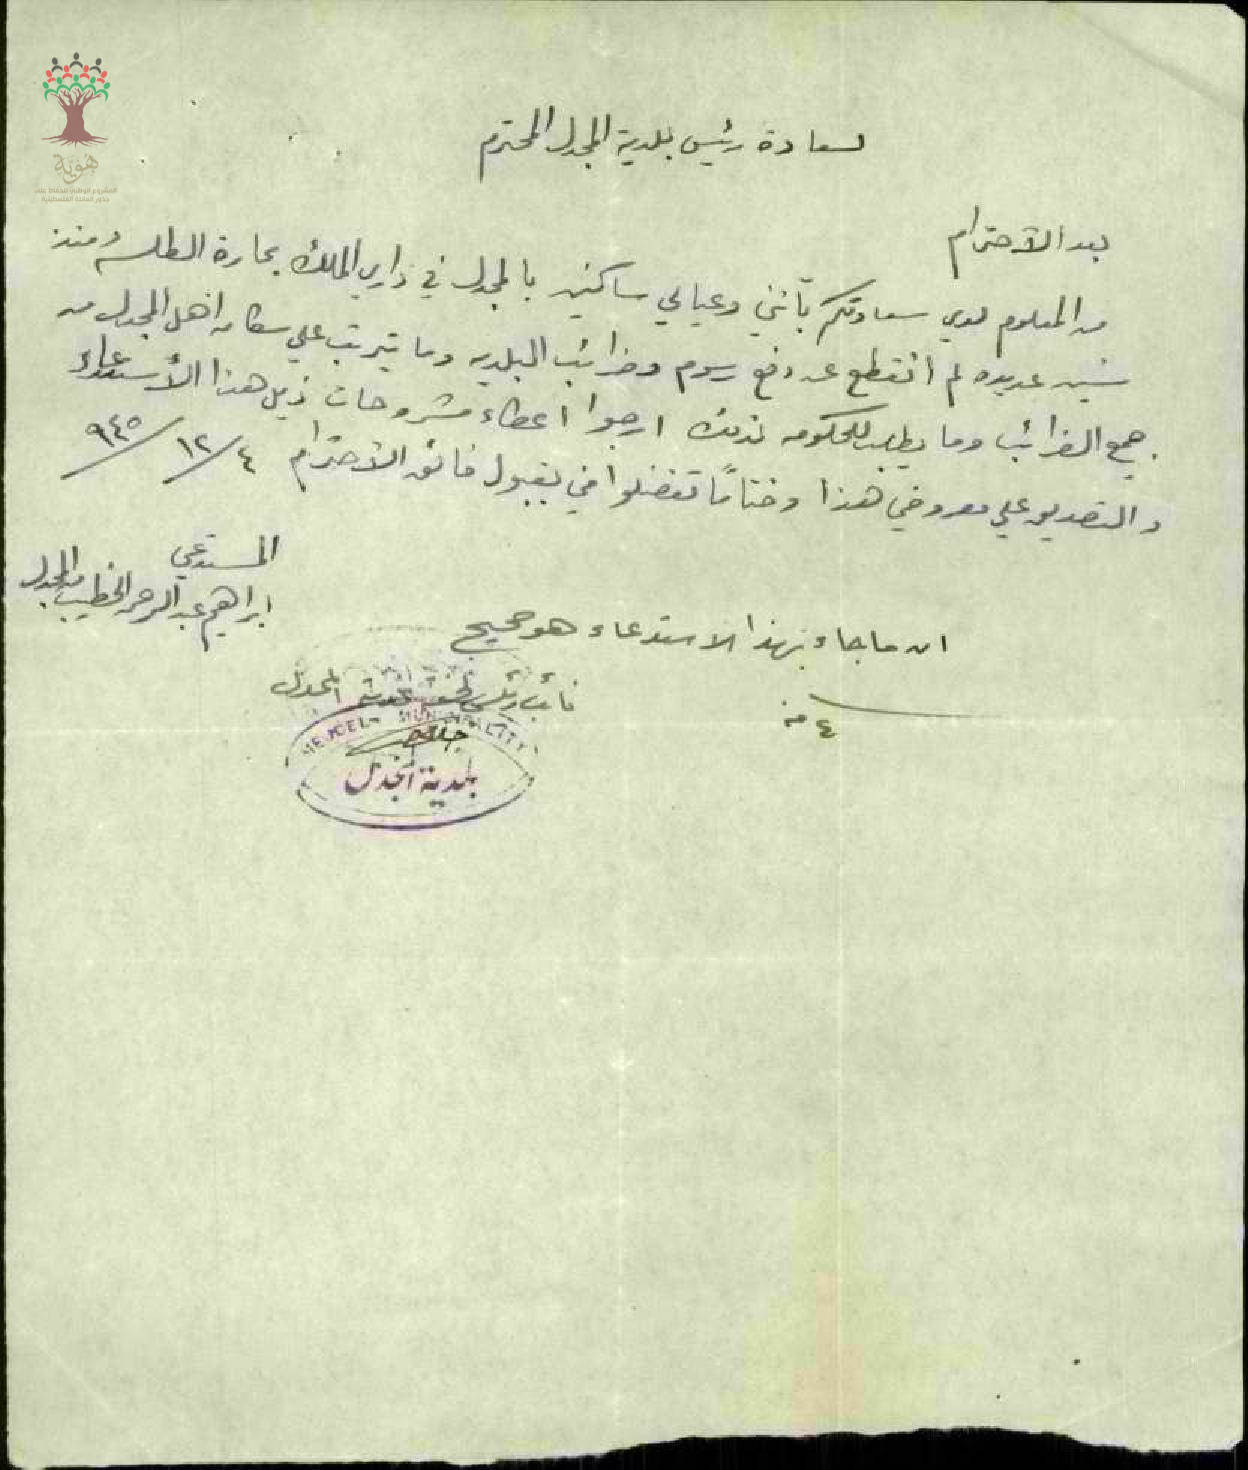 هوية
المشروع الوطني للحفاظ على
جذور العائلة الفلسطينية
لسعادة رئيس بلدية المجدل المحترم
بعد الاحترام
من المعلوم لدي سعادتكم بأنني وعيالي ساكنين بالمجدل في داري الملك بحارة الطلسه ومنذ
سنين عديده لم أنقطع عن دفع رسوم وضرائب البلديه وما يترتب علي سكان اهل المجدل من
جميع الضرائب وما يطلب للحكومه لذلك ارجوا اعطاء مشروحات ذيل هذا الأستدعاء
والتصديق علي معروضي هذا وختاماً تفضلوا في بقبول فائق الاحترام ٤/١٢/٩٤٥
المستدعي
ابراهيم عبدالرحمن الخطيب من المجدل
ان ما جاء بهذا الاستدعاء هو صحيح
٤ منه
نائب رئيس بلدية المجدل
MEJDEL MUNICIPALITY
بلدية المجدل